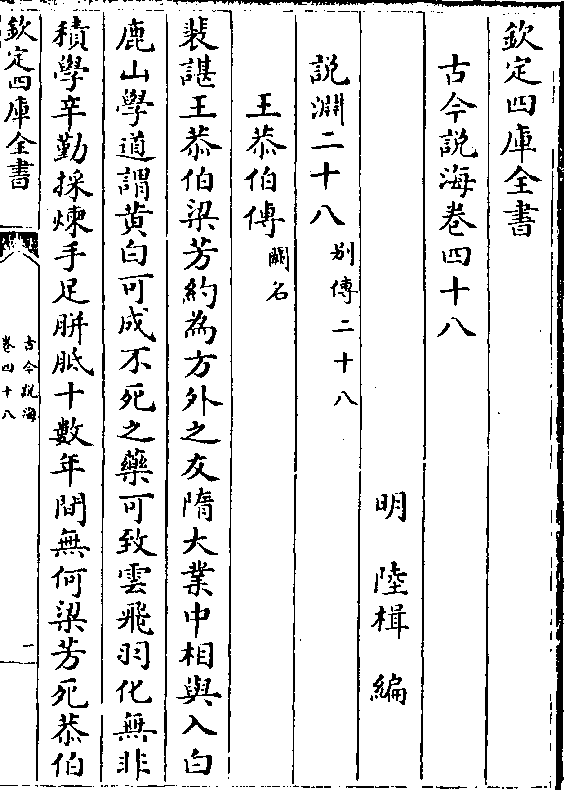 欽定四庫全書
古今説海卷四十八
明 陸楫 編
説淵二十八 别傳二十八
王恭伯傳 闕名
裴諶王恭伯梁芳約為方外之友隋大業中相與入白
鹿山學道謂黄白可成不死之藥可致雲飛羽化無非
積學辛勤採煉手足胼胝十數年間無何梁芳死恭伯
欽定四庫全書
古今説海
卷四十八
一